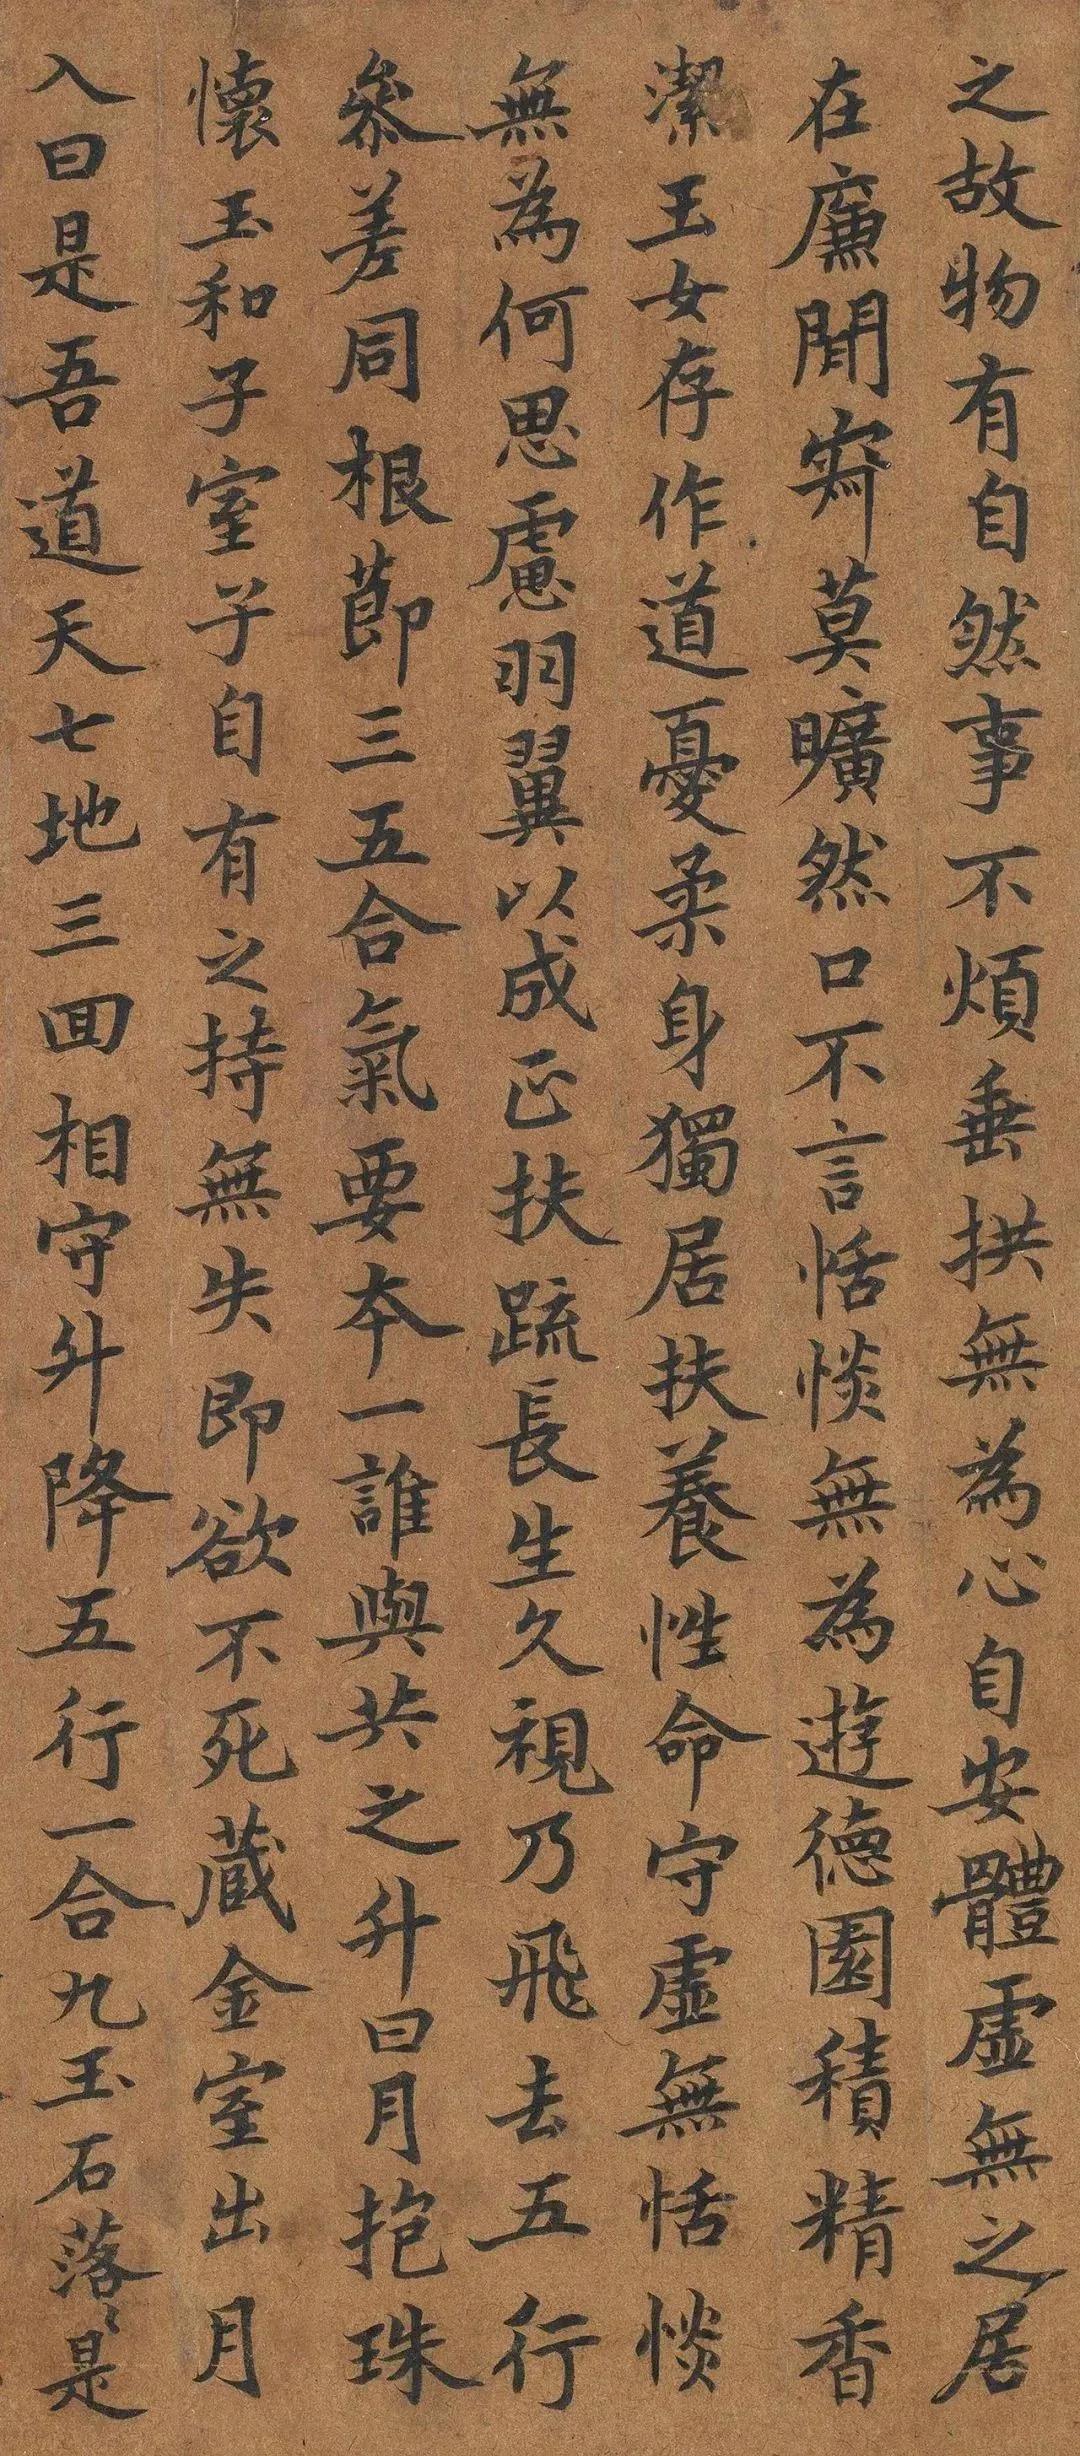 之故物有自然事不煩垂拱無為心自安體虛無之居
在廉閒寂莫曠然口不言恬惔無為遊德園積精香
潔玉女存作道憂柔身獨居扶養性命守虛無恬惔
無為何思慮羽翼以成正扶疏長生久視乃飛去五行
參差同根節三五合氣要本一誰與共之升日月抱珠
懷玉和子室子自有之持無失即欲不死藏金室出月
入日是吾道天七地三回相守升降五行一合九玉石落〻是